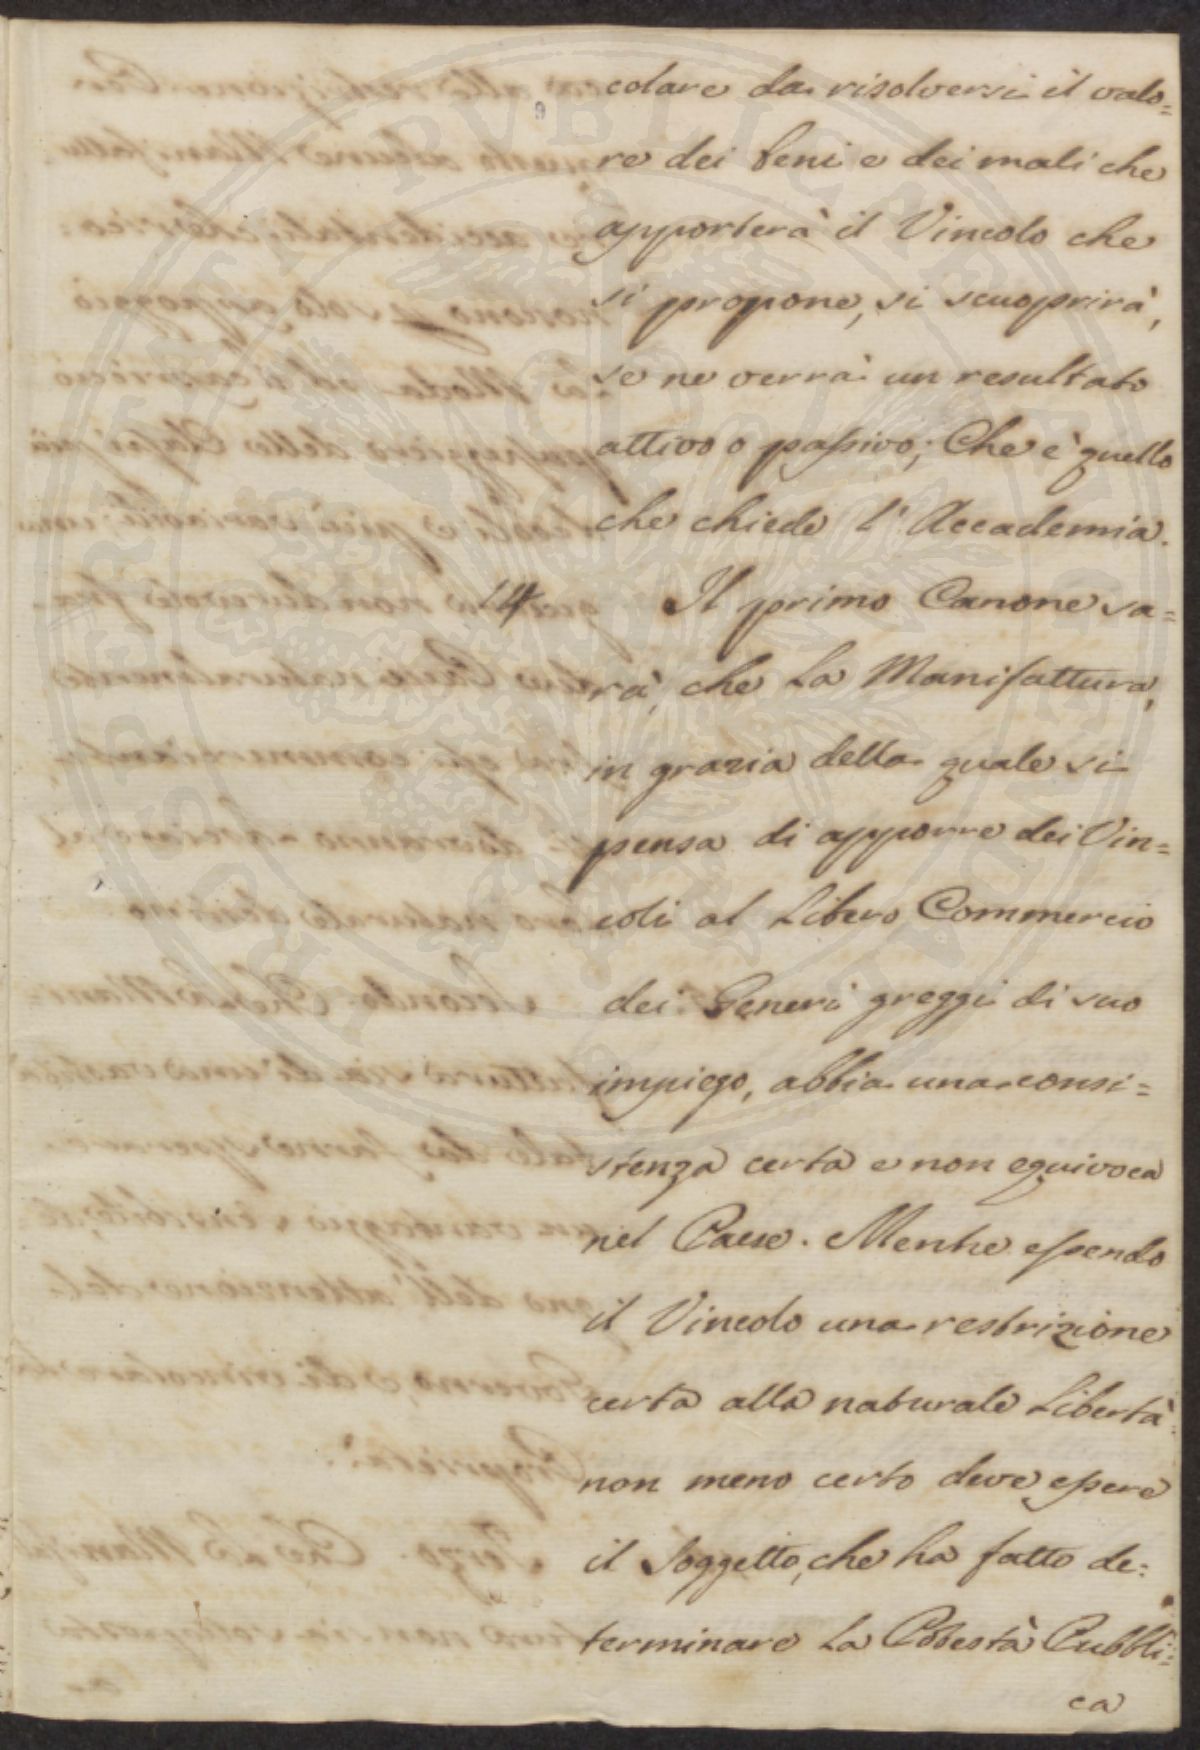 colare da risolversi il valo=
re dei beni e dei mali che
apporterà il Vincolo che
si propone, si scuoprirà,
se ne verrà un resultato
attivo o passivo; Che è quello
che chiede l'Accademia.
14 Il primo Canone sa=
rà, che La Manifattura,
in grazia della quale si
pensa di apporre dei Vin=
coli al Libero Commercio
dei Generi greggi di suo
impiego, abbia una consi=
stenza certa e non equivoca
nel Paese. Mentre essendo
il Vincolo una restrizione
certa alla naturale Libertà
non meno certo deve essere
il Soggetto, che ha fatto de:
terminare La Potestà Pubbli=
ca